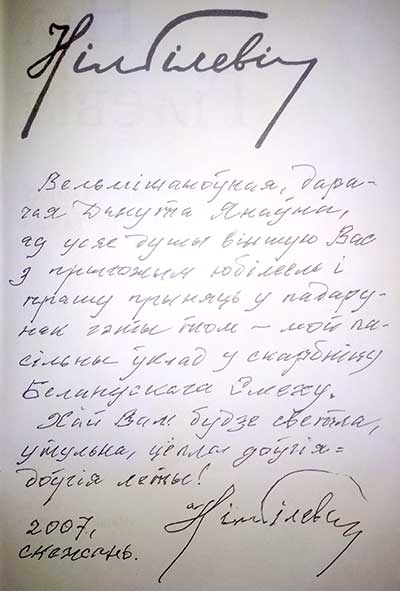 Ніл Гілевіч
Вельмішаноўная, дара-
гая Данута Янаўна,
ад усяе душы віншую Вас
з прыгожым юбілеем і
прашу прыняць у падару-
нак гэты том – мой па-
сільны ўклад у скарбніцу
Беларускага Смеху.
Хай Вам будзе светла,
утульна, цёпла доўгія=
доўгія леты!
Ніл Гілевіч
2007,
снежань.